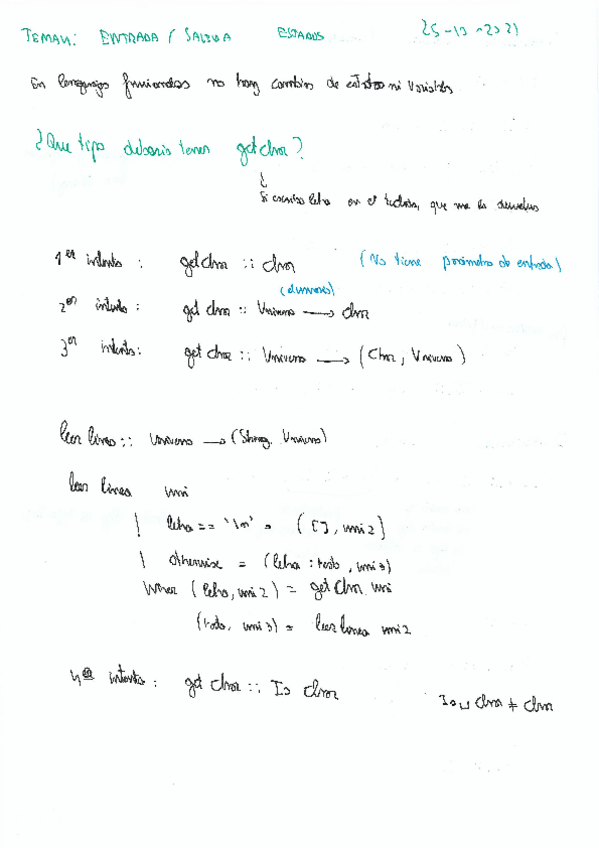 TEMA 4: ENTRADA / SALIDA ESTADOS 25-10-2021
En lenguajes funcionales no hay cambios de estados ni variables
¿Que tipo deberia tener getchar?
Si escribo letra en el teclado, que me la devuelva
1er intento : getchar :: char (No tiene parámetro de entrada)
(dummies)
2er intento : get char :: Universo → char
3er intento: get char :: Universo → (Char, Universo)
leer linea :: Universo → (String, Universo)
leer linea uni
| letra == '\n' = ([], uni2)
| otherwise = (letra : resto, uni3)
Where (letra, uni2) = get Char uni
(resto, uni3) = leer linea uni2
4º intento : get char :: Io char
Io␣char ≠ char